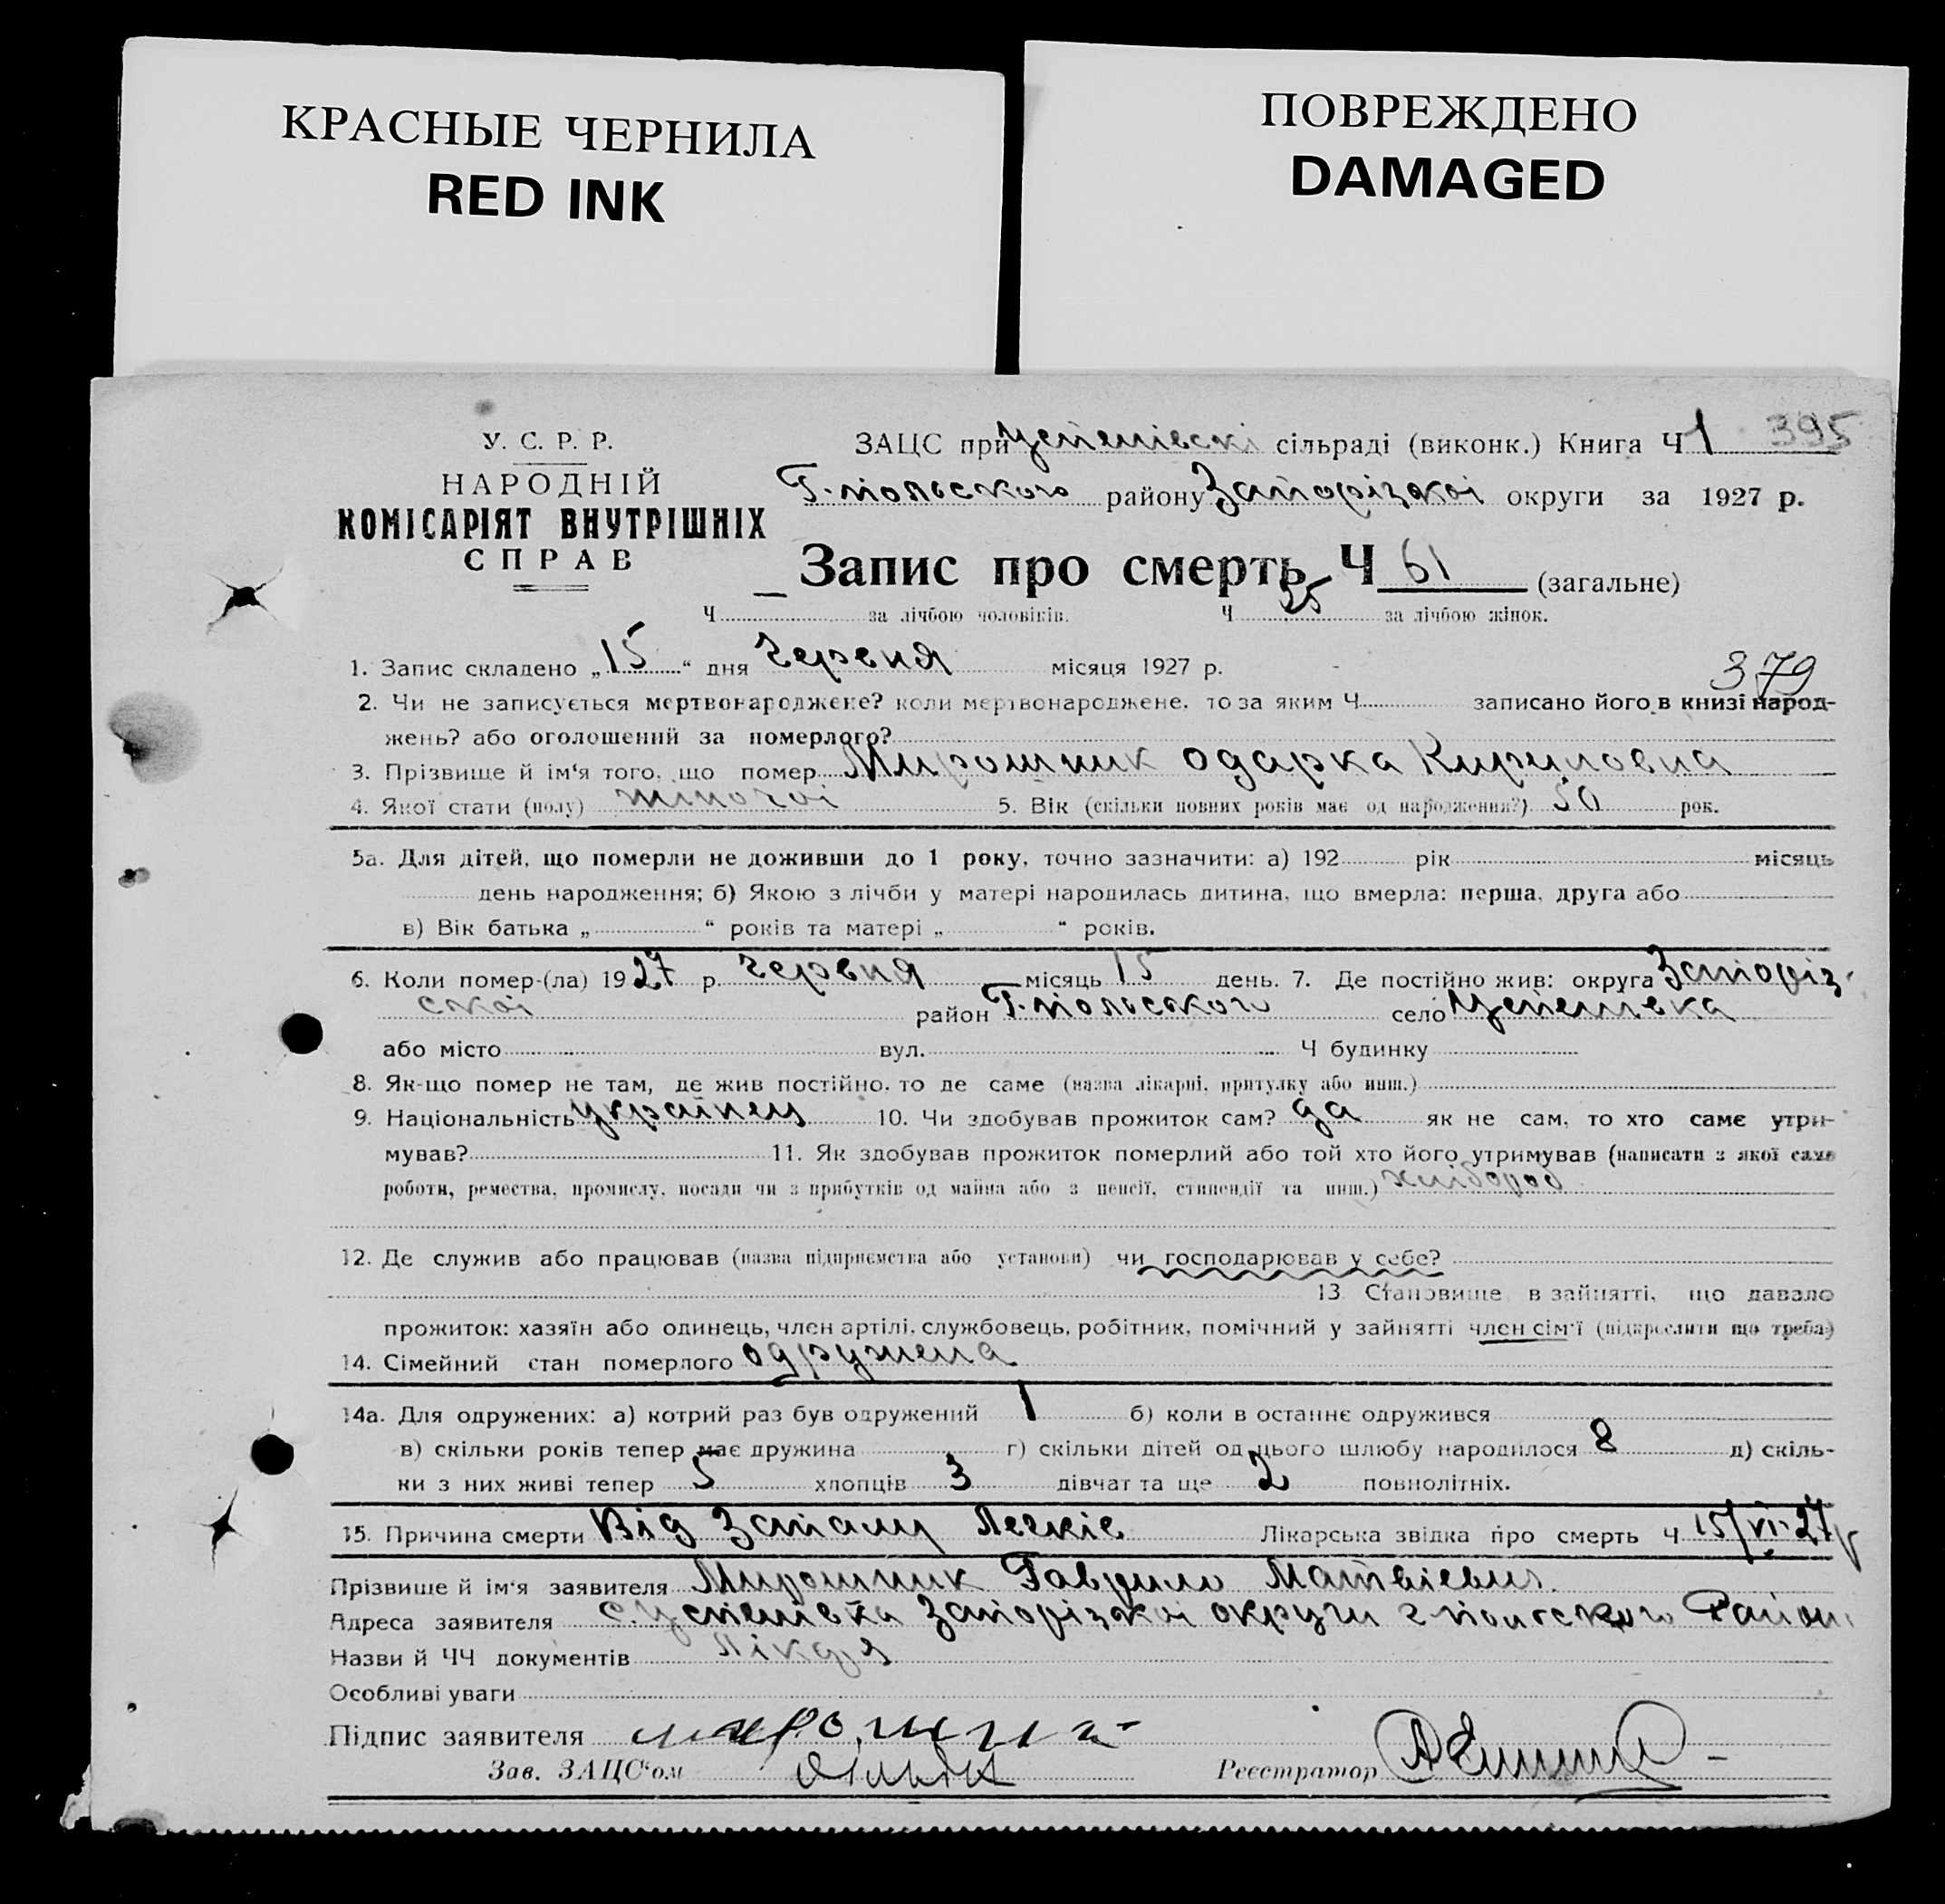 КРАСНЫЕ ЧЕРНИЛА
RED INK
ПОВРЕЖДЕНО
DAMAGED
У. С. Р. Р.
НАРОДНІЙ
КОМІСАРІЯТ ВНУТРІШНІХ
СПРАВ
ЗАЦС при Успенівскі сільраді (виконк.) Книга Ч 1 395
Г-польского району Запорізкоі округи за 1927 р.
Запис про смерть Ч 61 (загальне)
Ч за лічбою чоловіків. Ч 25 за лічбою жінок.
1. Запис складено „15“ дня червня місяця 1927 р.
379
2. Чи не записується мертвонароджене? коли мертвонароджене, то за яким Ч записано його в книзі народ-
жень? або оголошений за померлого?
3. Прізвище й ім‘я того, що помер Мирошник Одарка Кириловна
4. Якої стати (полу) жіночоі 5. Вік (скільки повних років має од народження?) 50 рок.
5а. Для дітей, що померли не доживши до 1 року, точно зазначити: а) 192 рік місяць
день народження; б) Якою з лічби у матері народилась дитина, що вмерла: перша, друга або
в) Вік батька „ “ років та матері „ “ років.
6. Коли помер-(ла) 1927 р. червня місяць 15 день. 7. Де постійно жив: округа Запоріз-
скоі район Г-польского село Успенівка
або місто вул. Ч будинку
8. Як-що помер не там, де жив постійно, то де саме (назва лікарні, притулку або инш.)
9. Національність українец 10. Чи здобував прожиток сам? да як не сам, то хто саме утри-
мував? 11. Як здобував прожиток померлий або той хто його утримував (написати з якої саме
роботи, ремества, промислу, посади чи з прибутків од майна або з пенсії, стипендії та инш.) хлібороб
12. Де служив або працював (назва підприємства або установи) чи господарював у себе?
13. Становище в зайнятті, що давало
прожиток: хазяїн або одинець, член артілі, службовець, робітник, помічний у зайнятті член сім‘ї (підкреслити що треба)
14. Сімейний стан померлого одружена
14а. Для одружених: а) котрий раз був одружений 1 б) коли в останнє одружився
в) скільки років тепер має дружина г) скільки дітей од цього шлюбу народилося 8 д) скіль-
ки з них живі тепер 5 хлопців 3 дівчат та ще 2 повнолітніх.
15. Причина смерти Від запалу легків Лікарська звідка про смерть Ч 15/VI-27 р
Прізвище й ім‘я заявителя Мирошник Гаврило Матвієвич
Адреса заявителя с. Успенівка Запорізкоі округи Г-польского Району
Назви й ЧЧ документів
Особливі уваги
Підпис заявителя мирошник
Зав. ЗАЦС‘ом Реєстратор